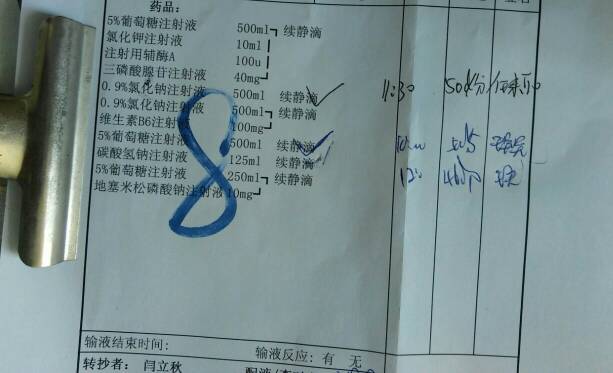 药品:
5%葡萄糖注射液 500ml 续静滴
氯化钾注射液 10ml
注射用辅酶A 100u
三磷酸腺苷注射液 40mg
0.9%氯化钠注射液 500ml 续静滴 11:30 50
0.9%氯化钠注射液 500ml 续静滴
维生素B6注射 100mg
5%葡萄糖注射液 500ml 续静滴
碳酸氢钠注射液 125ml 续静滴
5%葡萄糖注射液 250ml 续静滴
地塞米松磷酸钠注射液 10mg
8
输液结束时间: 输液反应: 有 无
转抄者: 闫立秋